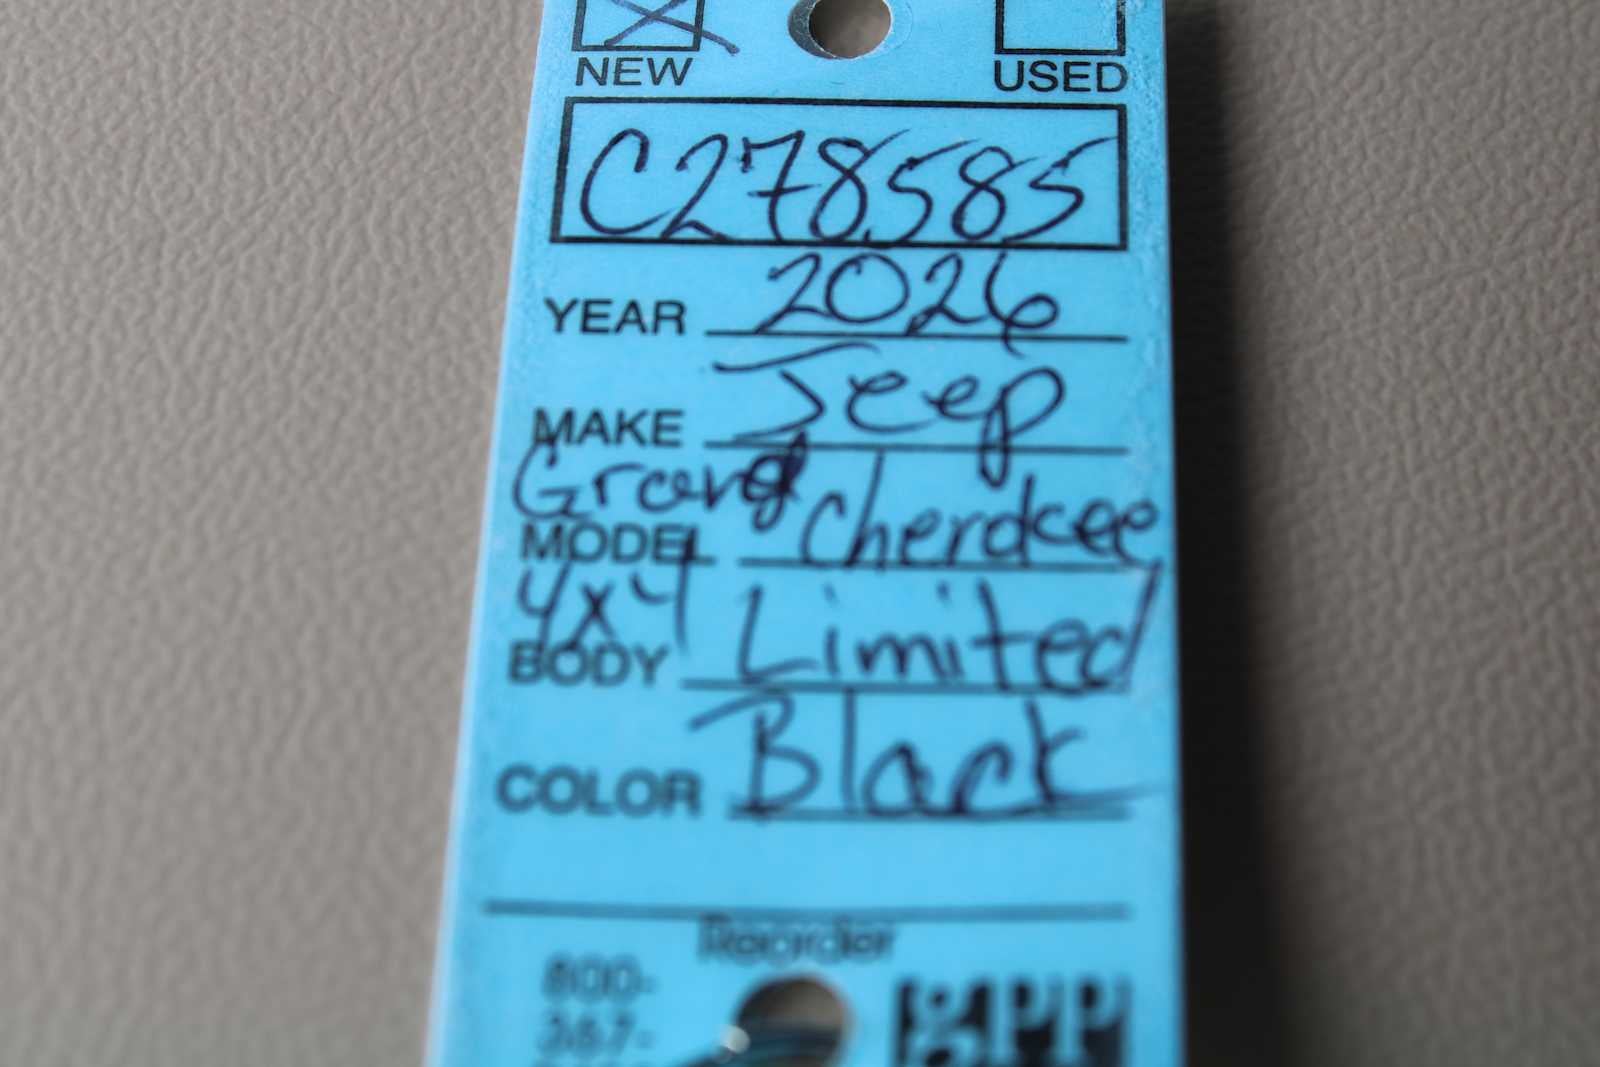 NEW USED
C278585
YEAR 2026
MAKE Jeep
Grand
MODEL Cherokee
4x4
BODY Limited
COLOR Black
Reorder
800-
367-